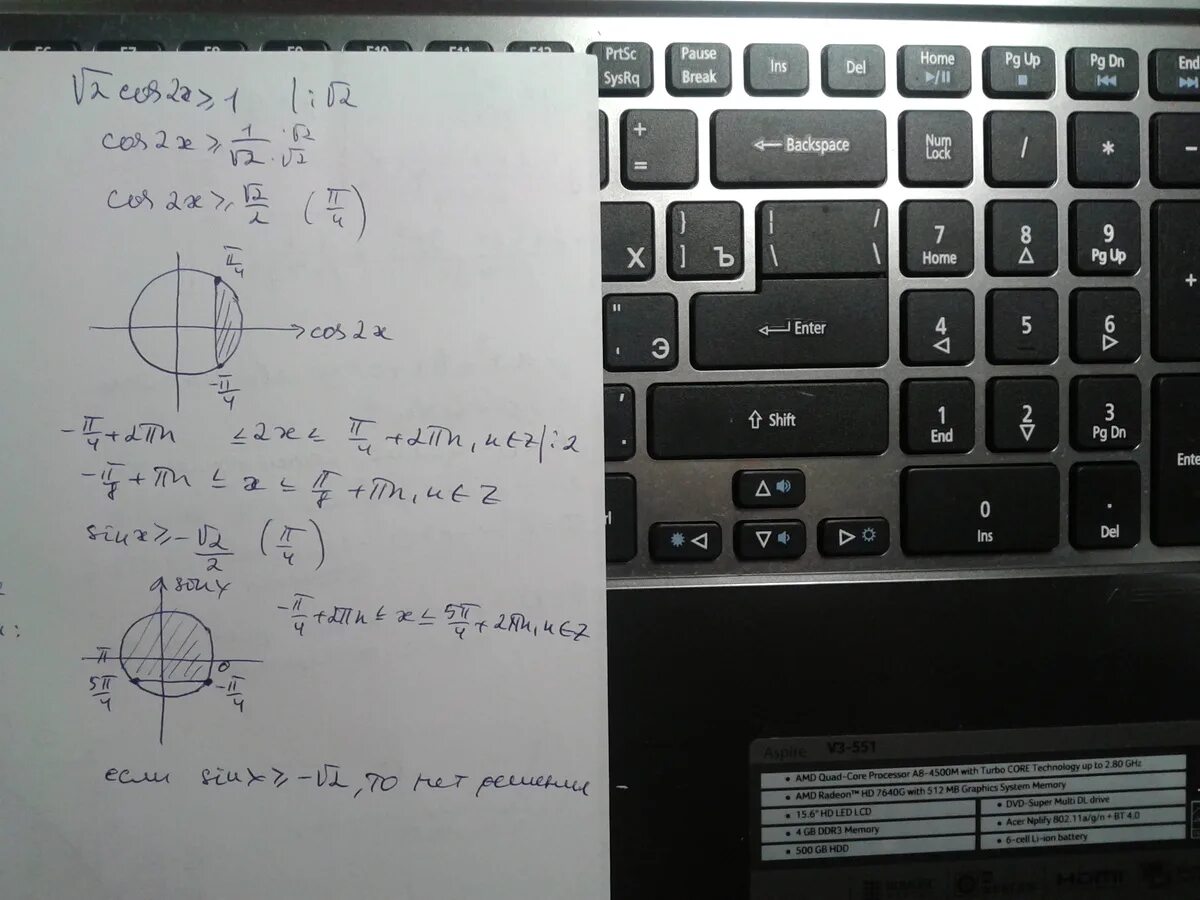 √2 cos2x ≥ 1 | : √2
cos 2x ≥ 1/√2 · √2/√2
cos 2x ≥ √2/2 (π/4)
π/4
cos 2x
-π/4
-π/4 + 2πn ≤ 2x ≤ π/4 + 2πn, n ∈ Z | : 2
-π/8 + πn ≤ x ≤ π/8 + πn, n ∈ Z
sin x ≥ -√2/2 (π/4)
sin x
-π/4 + 2πn ≤ x ≤ 5π/4 + 2πn, n ∈ Z
π 0
5π/4 -π/4
если sin x ≥ -√2, то нет решения
F6 F7 F8 F9 F10 F11 F12
PrtSc SysRq
Pause Break
Ins
Del
Home
Pg Up
Pg Dn
End
+ =
Backspace
Num Lock
/
*
-
Х
} ] Ъ
| / \ \
7 Home
8
9 Pg Up
+
" ' Э
Enter
4
5
6
, .
Shift
1 End
2
3 Pg Dn
Enter
0 Ins
. Del
Aspire V3-551
AMD Quad-Core Processor A8-4500M with Turbo CORE Technology up to 2.80 GHz
AMD Radeon™ HD 7640G with 512 MB Graphics System Memory
15.6" HD LED LCD
DVD-Super Multi DL drive
4 GB DDR3 Memory
Acer Nplify 802.11a/g/n + BT 4.0
500 GB HDD
6-cell Li-ion battery
HDMI